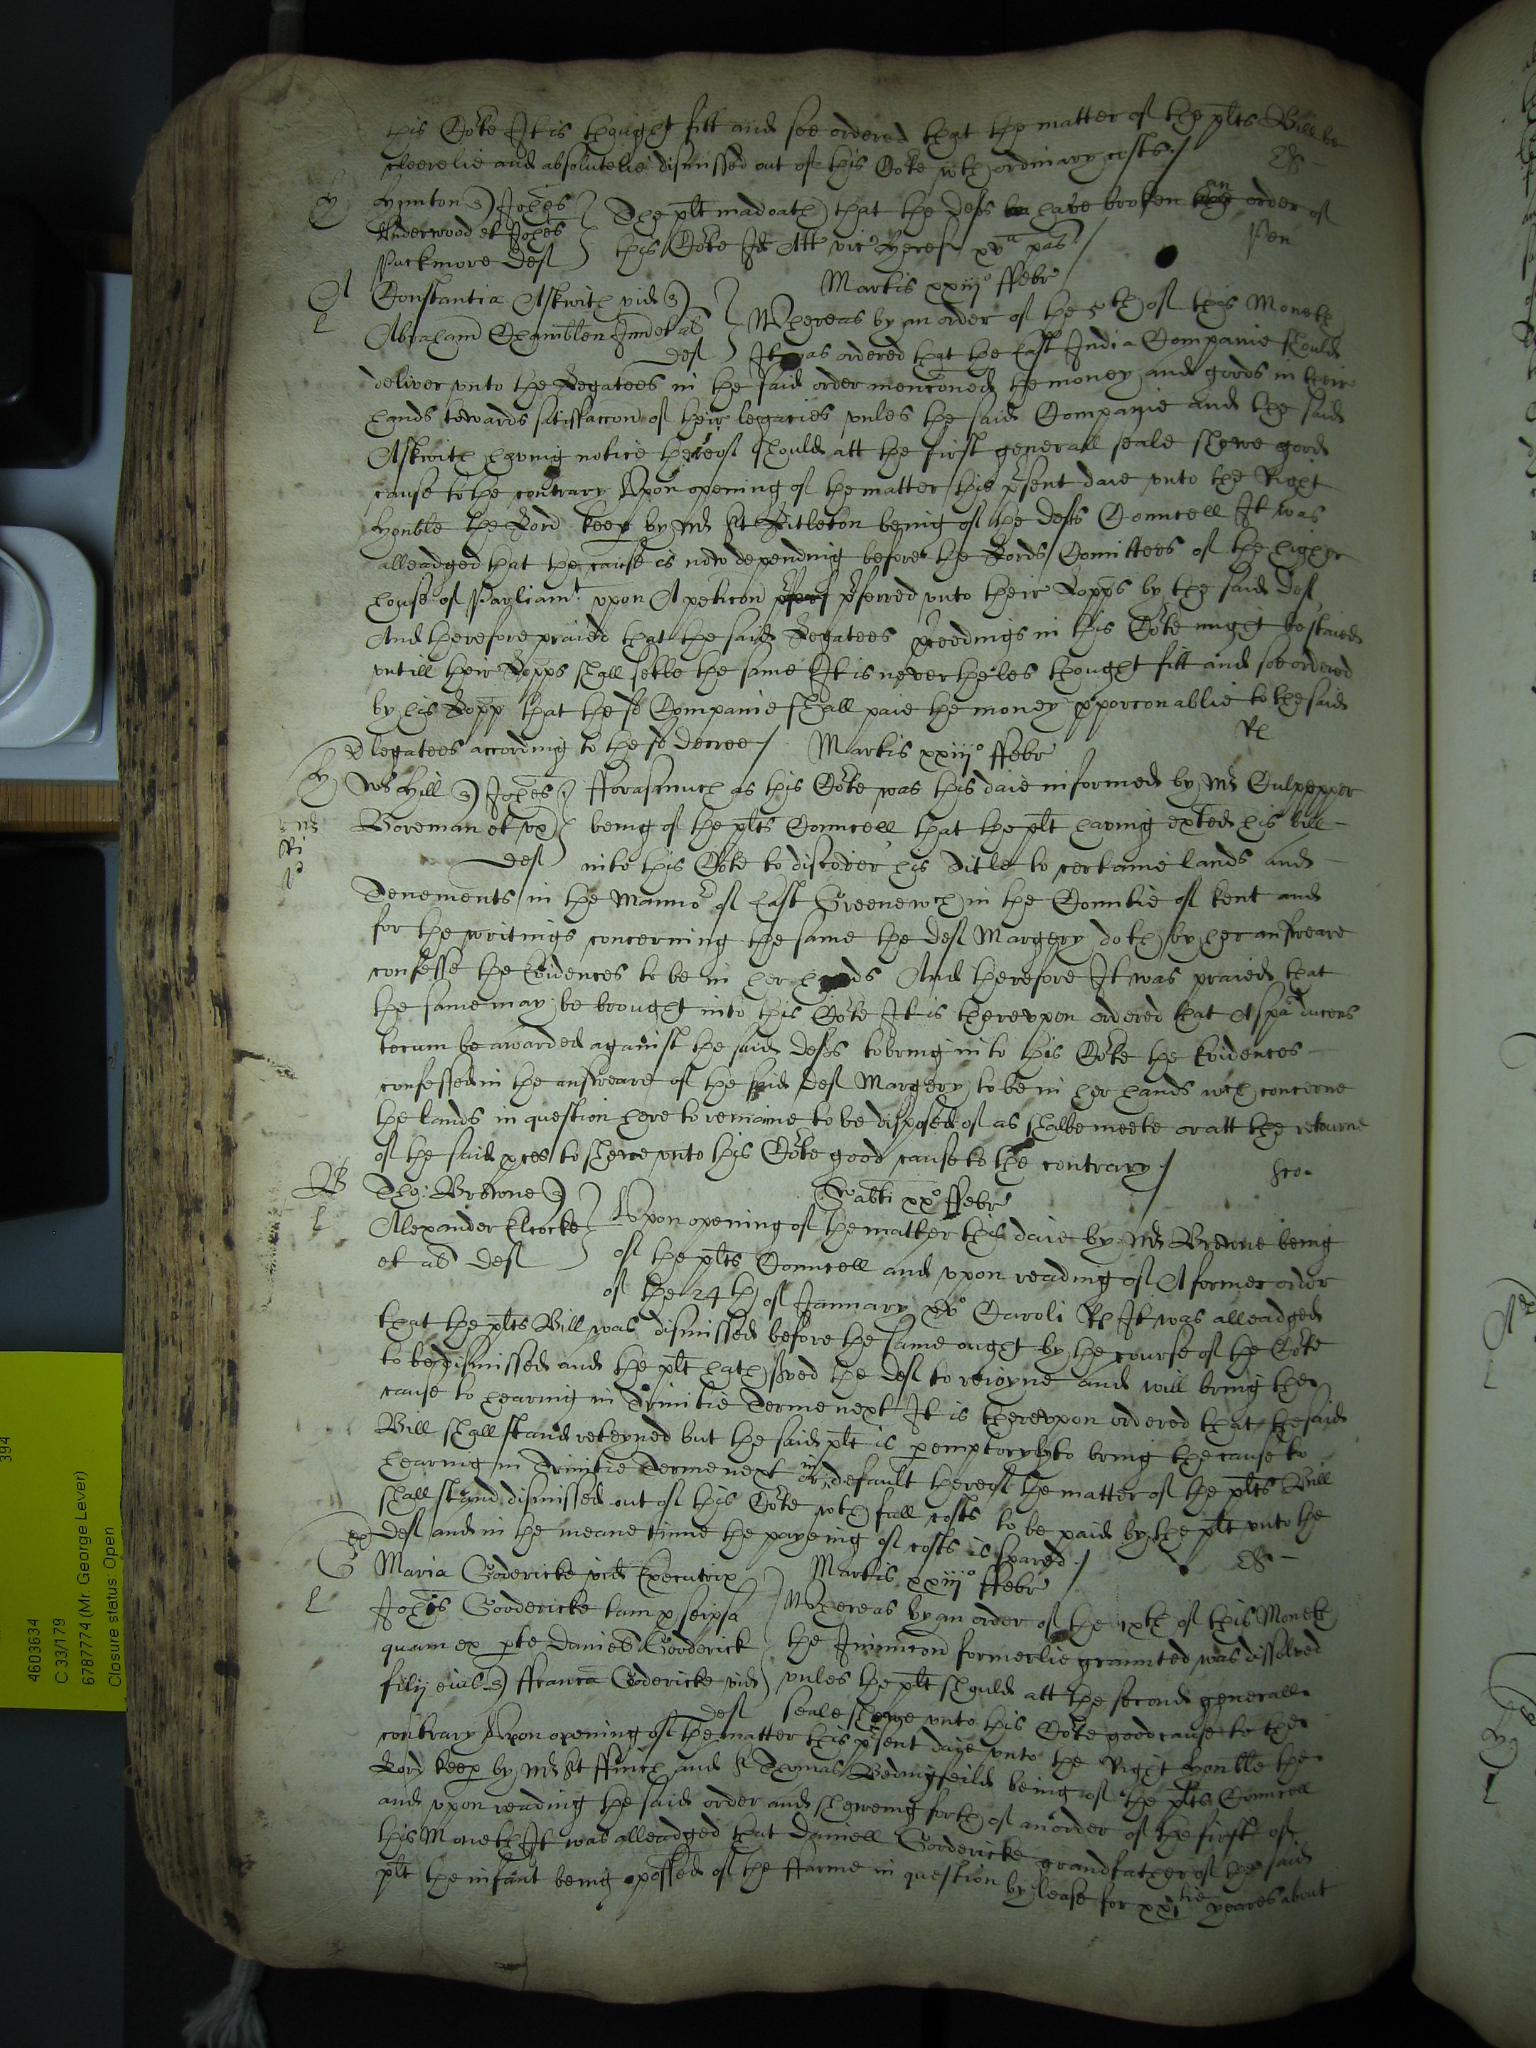 this Co:te It is thought fitt and soe ordered that the matter of the plts Bill be
cleerelie and absolutelie dismissed out of this Co:te wth ordinary costs /
Hynton Johes The plt mad oath that the defts have broken an order of
Underwood et Johes this Co:te Id Att vic Heref xva pas /
Puckmore deft
Pen
Martis xxiijo ffebr
Constantia Askwith vid
Abraham Chamblen Iun et al deft
Whereas by an order of the 5th of this Moneth
It was ordered that the East India Companie should
deliver unto the Legatees in the said order menconed the money and goods in their
hands towards satisfaccon of their legacies unles the said Companie and the said
Askwith having notice hereof should att the first generall seale shewe good
cause to the contrary Upon opening of the matter this psent daie unto the Right
Honble the Lord keep by Mr St Litleton being of the defts Councell It was
alleadged that the cause is now depending before the Lords Comittees of the higher
house of Parliamt upon A peticon pferred unto their Lopps by the said deft
And therefore praied that the said Legatees pceedings in this Co:te might be staied
untill their Lopps shall setle the same It is neverheles thought fitt and soe ordered
by his Lopp that the sd Companie shall paie the money pporconablie to the said
legatees according to the sd decree / Martis xxiijo ffebr
Ws Hill Johes fforasmuch as this Co:te was this daie informed by Mr Culpepper
Boreman et ux being of the plts Councell that the plt having exhted his bill
deft into this Co:te to discover his Title to certaine lands and
Tenements in the Manno:r of East Greenewch in the Countie of kent and
for the writings concerning the same the deft Margery doth by her answeare
confesse the Evidences to be in her hands And therefore It was praied that
the same may be brought into this Co:te It is thereupon ordered that A spa ducens
tecum be awarded against the said defts to bring into this Co:te the Evidences
confessed in the answeare of the said deft Margery to be in her hands wch concerne
the lands in question here to remaine to be disposed of as shalbe meete or att the retourne
of the said pces to shewe unto this Co:te good cause to the contrary /
Tho: Browne
Sabti xxo ffebr
Alexander Elcocke
et al deft
Upon opening of the matter this daie by Mr Browne being
of the plts Councell and upon reading of A former order
of the 24th of January xvo Caroli Rs It was alleadged
that the plts Bill was dismissed before the same ought by the course of the Co:te
to be dismissed and the plt hath sved the deft to reioyne and will bring the
cause to hearing in Trinitie Terme next It is thereupon ordered that the said
Bill shall stand reteyned but the said plt is pemptoryly to bring the cause to
hearing in Trinitie Terme next or in default thereof the matter of the plts Bill
shall stand dismissed out of this Co:te wth full costs to be paid by the plt unto the
deft and in the meane time the payeing of costs is spared /
Maria Godericke vid Executrix Martis xxiijo ffebr
Johis Goodericke tam p seipsa
quam ex pte Daniel Gooderick
filij eius ffranca Godericke vid
deft
Whereas by an order of the ixth of this Moneth
the Iniunccon formerlie graunted was dissolved
unles the plt should att the second generall
seale shewe unto this Co:te good cause to the
contrary Upon opening of the matter this psent daie unto the Right Honble the
Lord keep by Mr St ffinch and Sr Thomas Bedingfeild being of the plts Councell
and upon reading the said order and sheweing forth of an order of the first of
this Moneth It was alleadged that Daniell Godericke grandfather of the said
plt the infant being possed of the ffarme in question by lease for xxitie yeares about
4603634
394
C 33/179
6787774 (Mr. George Lever)
Closure status: Open